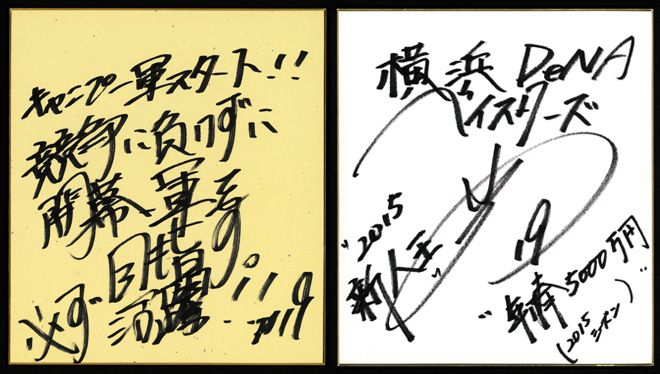 キャンプ一軍スタート!!
競争に負けずに
開幕一軍を
目指す。
必ず活躍!!
19
横浜 DeNA
ベイスターズ
19
"2015
新人王"
"年俸5000万円"
(2015
シーズン)